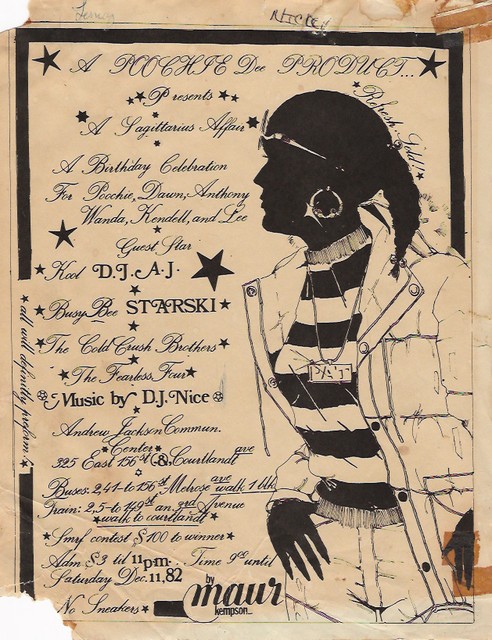 A POOCHIE Dee PRODUCT...
Presents
A Sagittarius Affair
Refresh-Ild!!
A Birthday Celebration
For Poochie, Dawn, Anthony
Wanda, Kendell, and Lee
Guest Star
Kool D.J. A.J.
Busy Bee STARSKI
The Cold Crush Brothers
The Fearless Four
Music by D.J. Nice
all will defintly preform.
PAT
Andrew Jackson Commun.
Center
325 East 156st & Courtlandt ave
Buses: 2,41-to 156st Melrose ave walk 1 blk.
Train: 2,5-to 149st an. 3rd Avenue
walk to courtlandt
Smrf contest $100 to winner
Adm. $3 til 11pm... Time 9es until
Saturday Dec. 11, 82
No Sneakers
by maur
kempson...